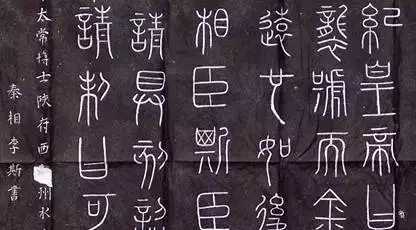 紀皇帝曰
襲號而金
遠也如後
相臣斯臣
請具刻詔
請制曰可
太常博士陝府西州水
秦相李斯書